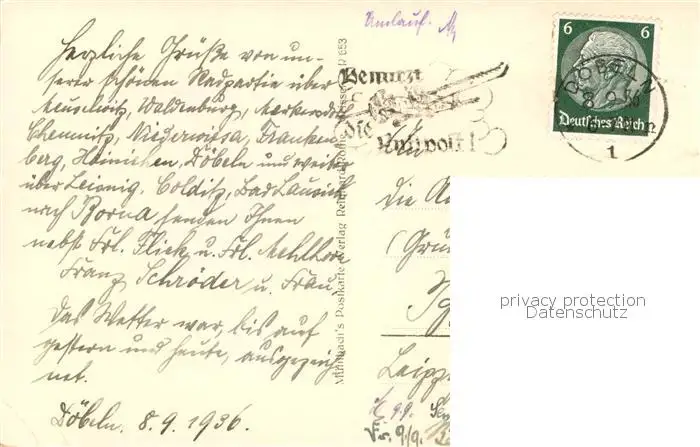 Umlauf.
Herzliche Grüße von un-
serer schönen Radpartie über
Meuselwitz, Waldenburg,
Chemnitz, Niederwiesa, Franken-
berg, Hainichen, Döbeln und weiter
über Leisnig, Colditz, Bad Lausick
nach Borna senden Ihnen
nebst Frl. Flick u. Frl. Mehlhorn
Franz Schröder u. Frau.
Das Wetter war, bis auf
gestern und heute, ausgezeich-
net.
Döbeln. 8.9.1936.
Benutzt
die
Luftpost!
6 6
Deutsches Reich
DÖBELN
1
Die
(Grü
Leipz
9/9.
privacy protection
Datenschutz